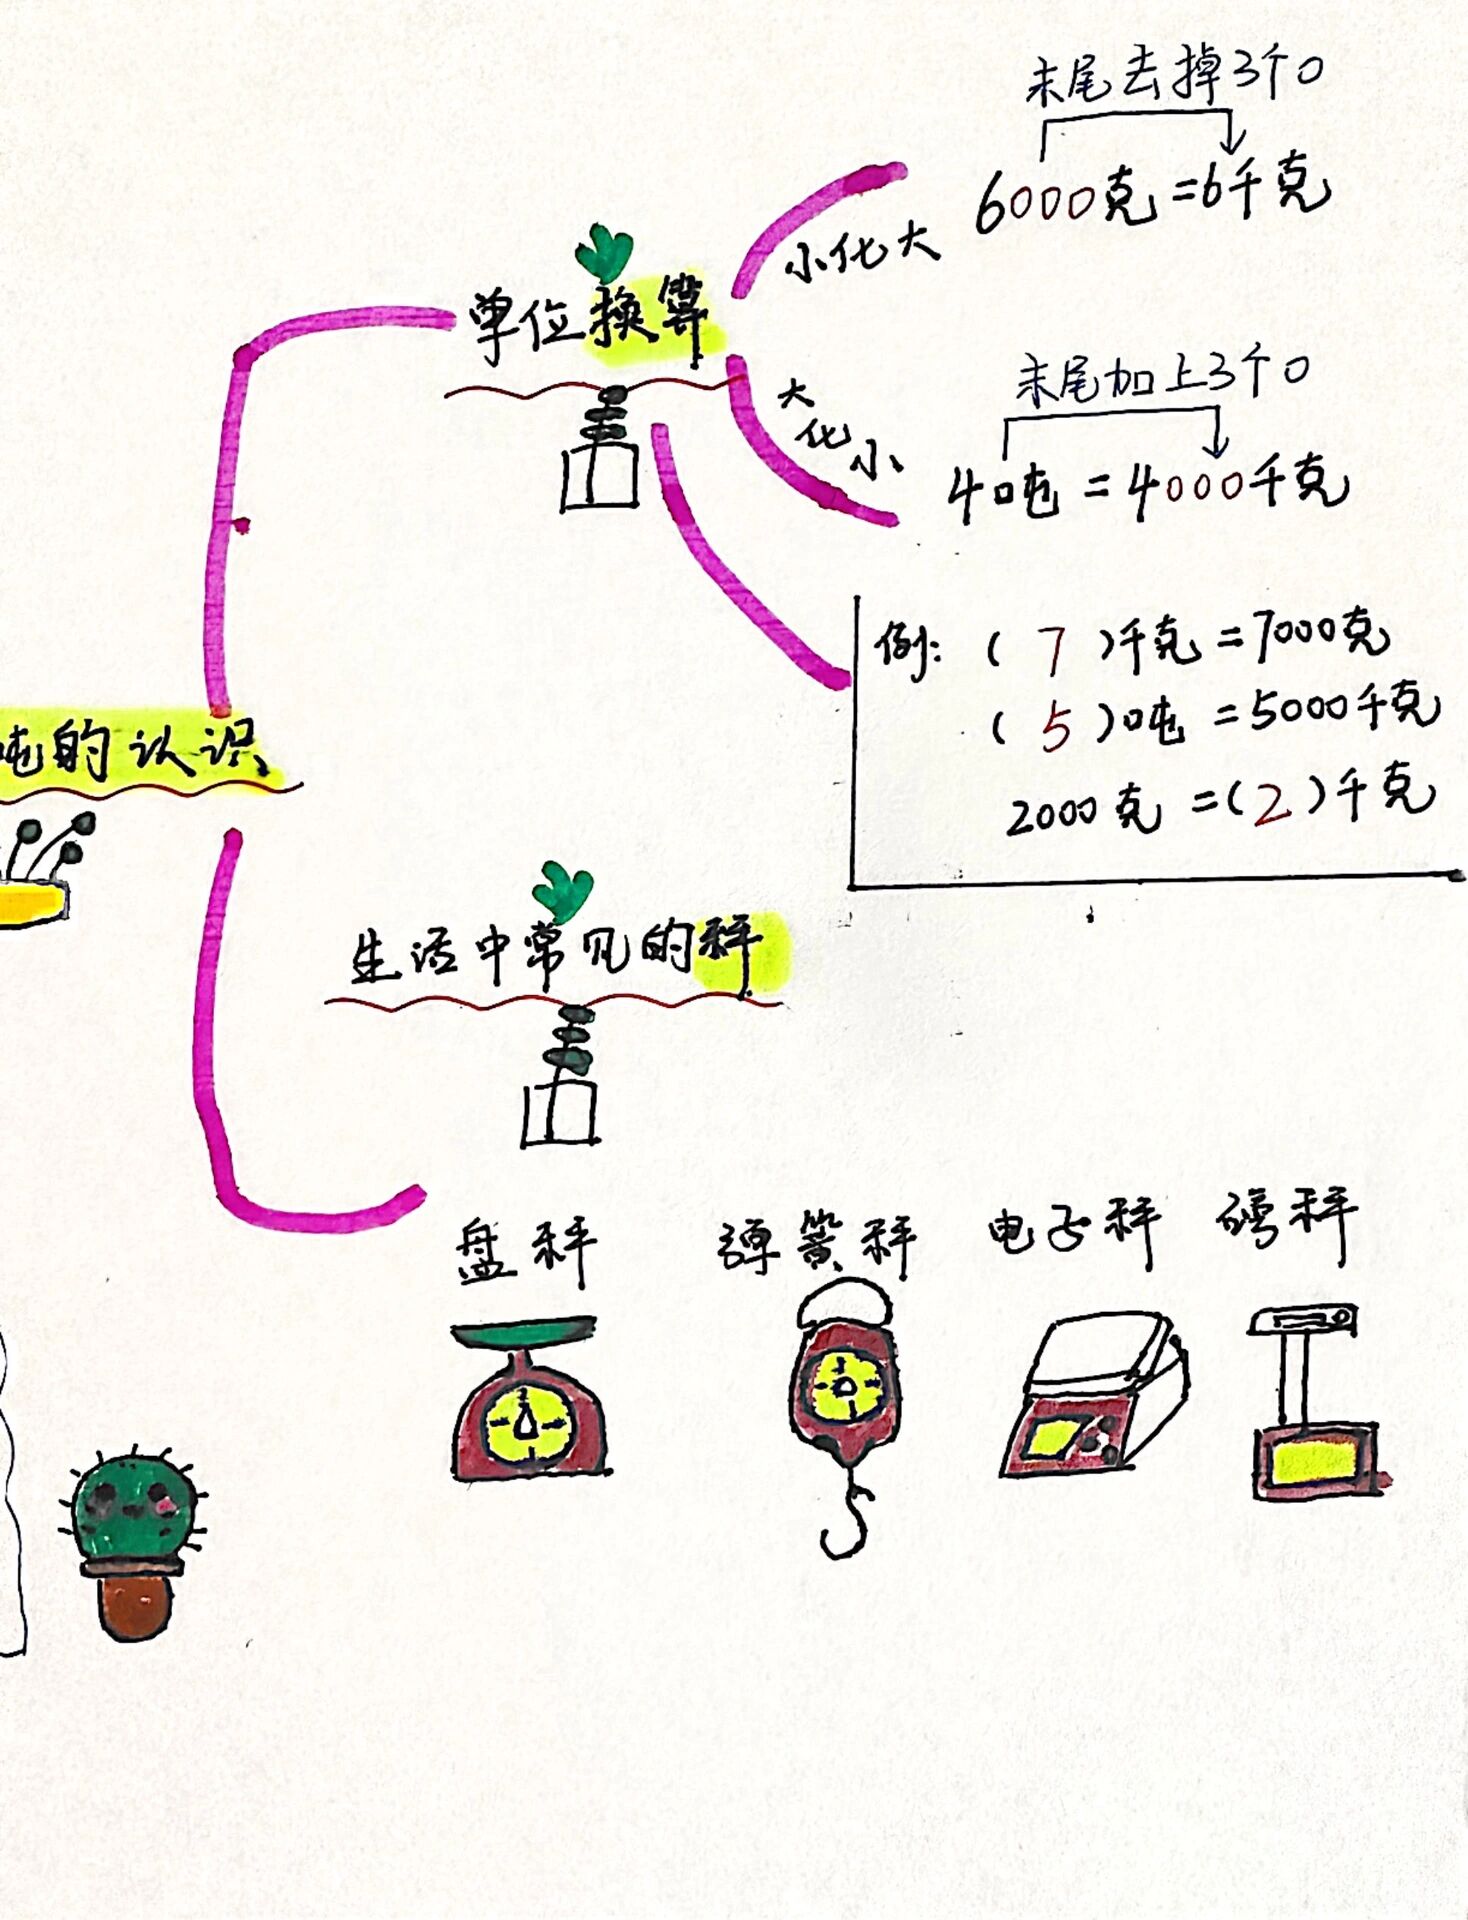 末尾去掉3个0
6000克=6千克
小化大
单位换算
末尾加上3个0
大化小
4吨=4000千克
例:(7)千克=7000克
(5)吨=5000千克
2000克=(2)千克
吨的认识
生活中常见的秤
盘秤 弹簧秤 电子秤 磅秤